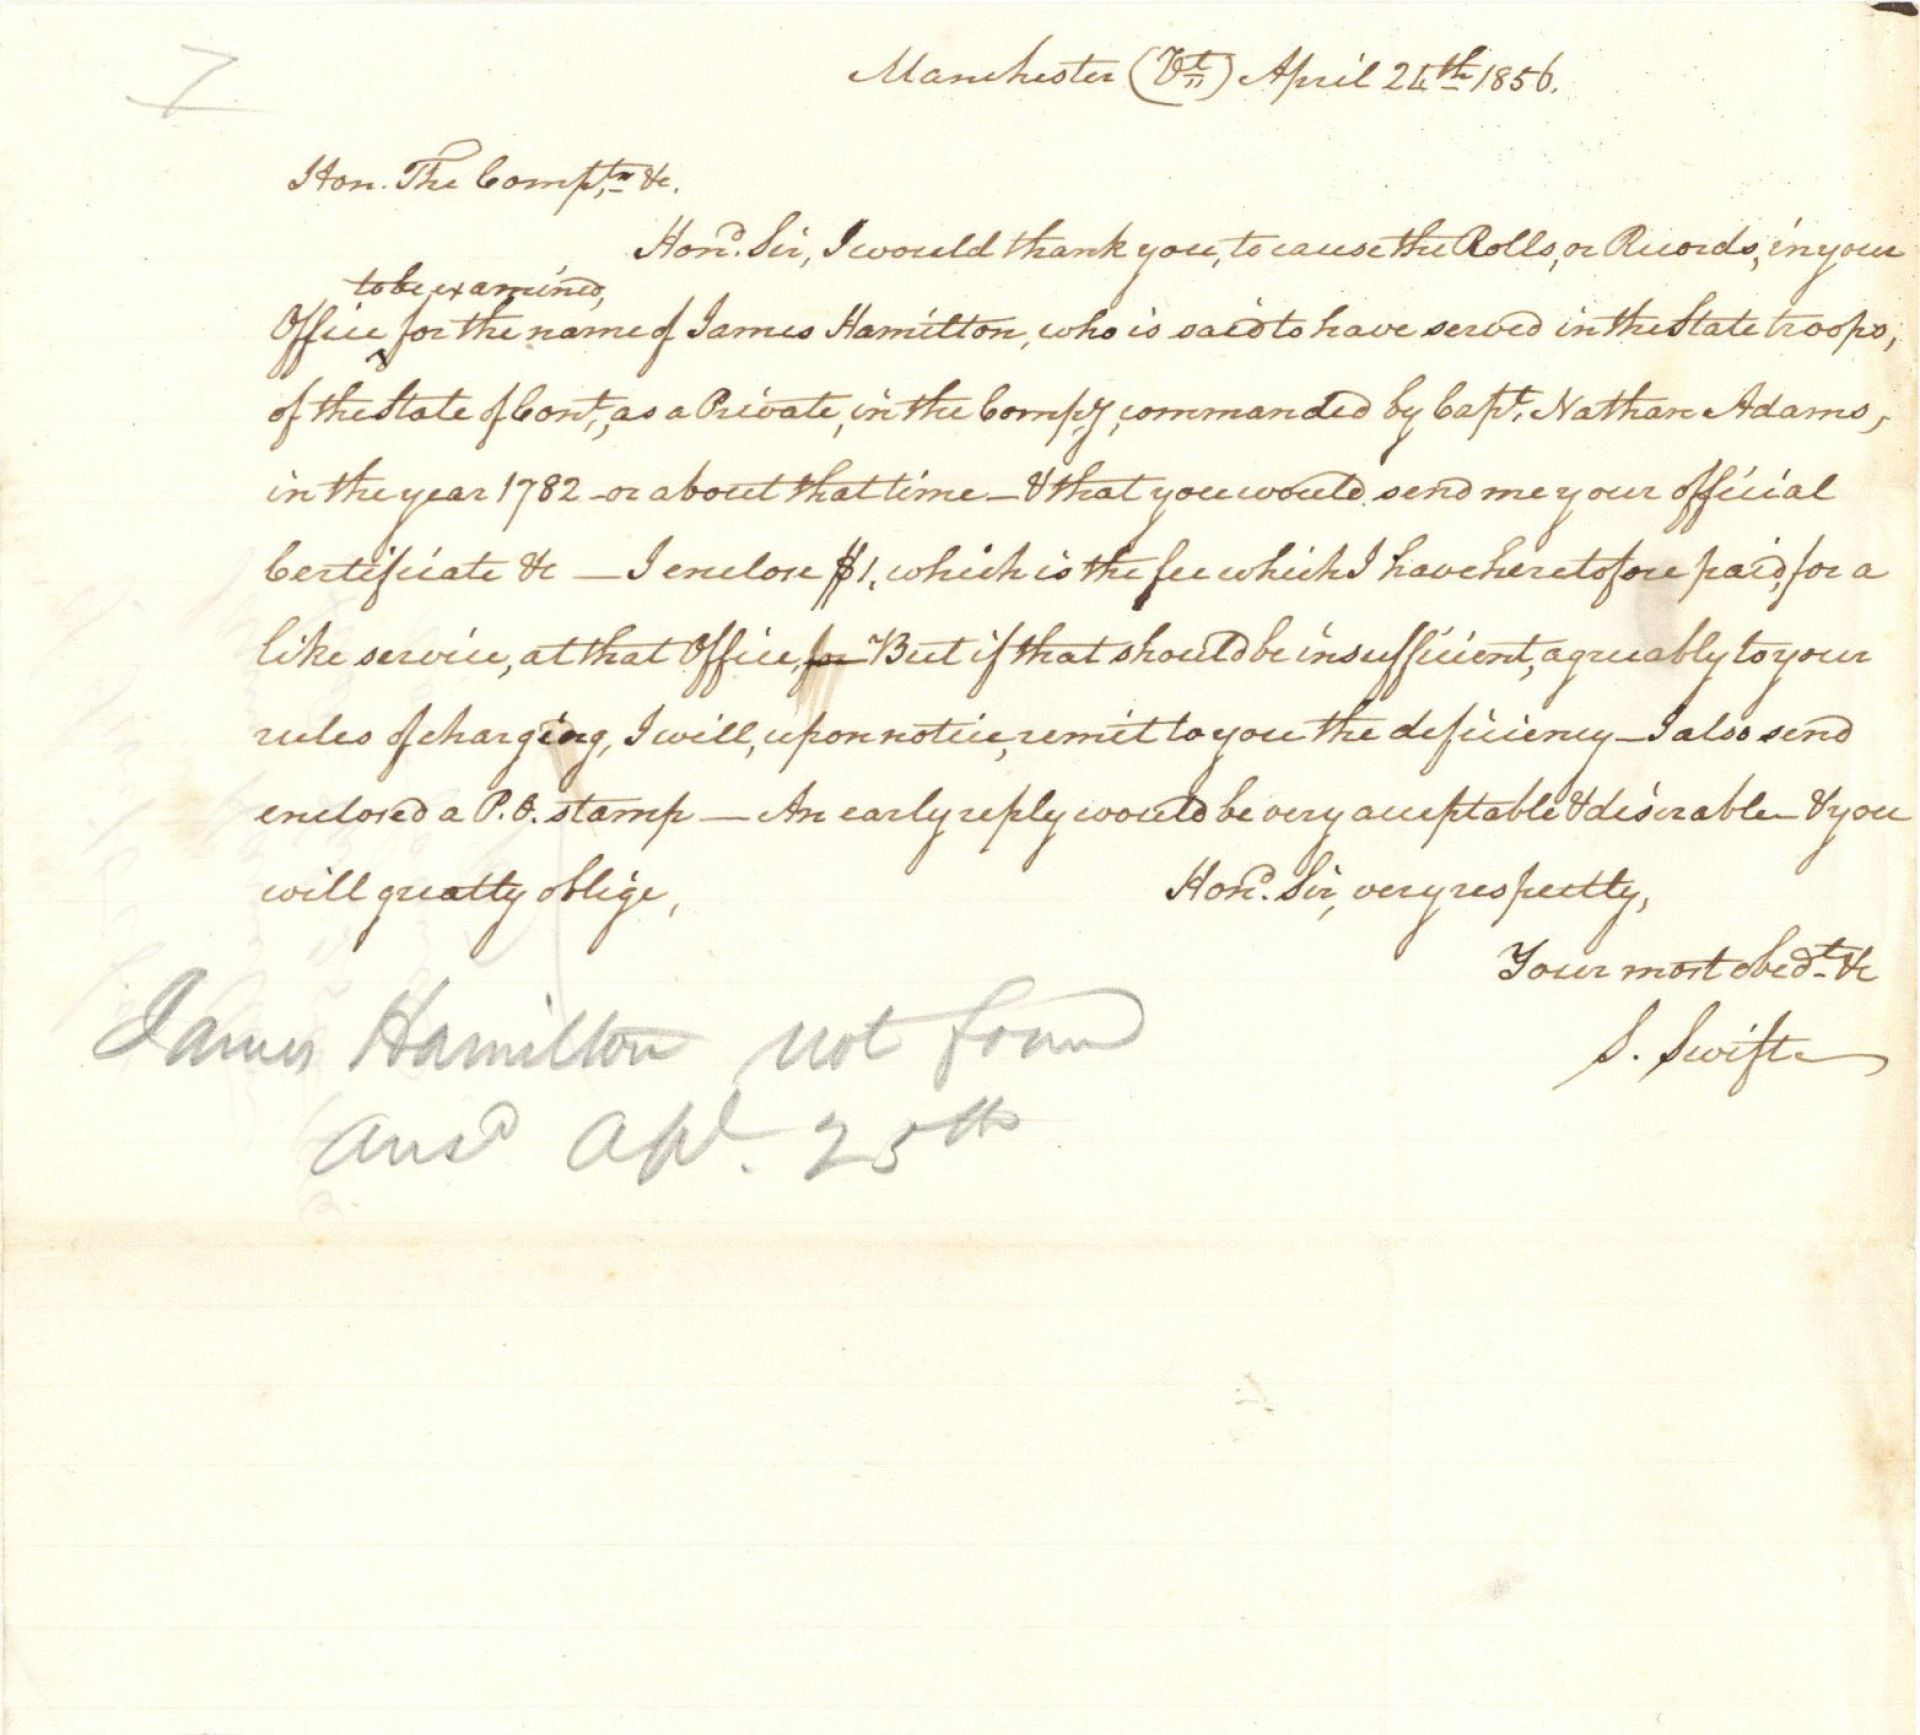 7
Manchester (Vt) April 24th 1856.
Hon. The Comptr &c.
Hond. Sir, I would thank you, to cause the Rolls, or Records, in your
to be examined,
Office for the name of James Hamilton, who is said to have served in the State troops,
of the State of Cont, as a Private, in the Compy, commanded by Capt. Nathan Adams,
in the year 1782 - or about that time - & that you would send me your official
Certificate &c — I enclose $1. which is the fee which I have heretofore paid, for a
like service, at that Office, for But if that should be insufficient, agreeably to your
rules of charging, I will, upon notice, remit to you the deficiency - I also send
enclosed a P.O. stamp — An early reply would be very acceptable & desirable - & you
will greatly oblige,
Hond. Sir, very respectly,
Your most obedt &c
S. Swift
James Hamilton not found
Ansd Apl. 25th